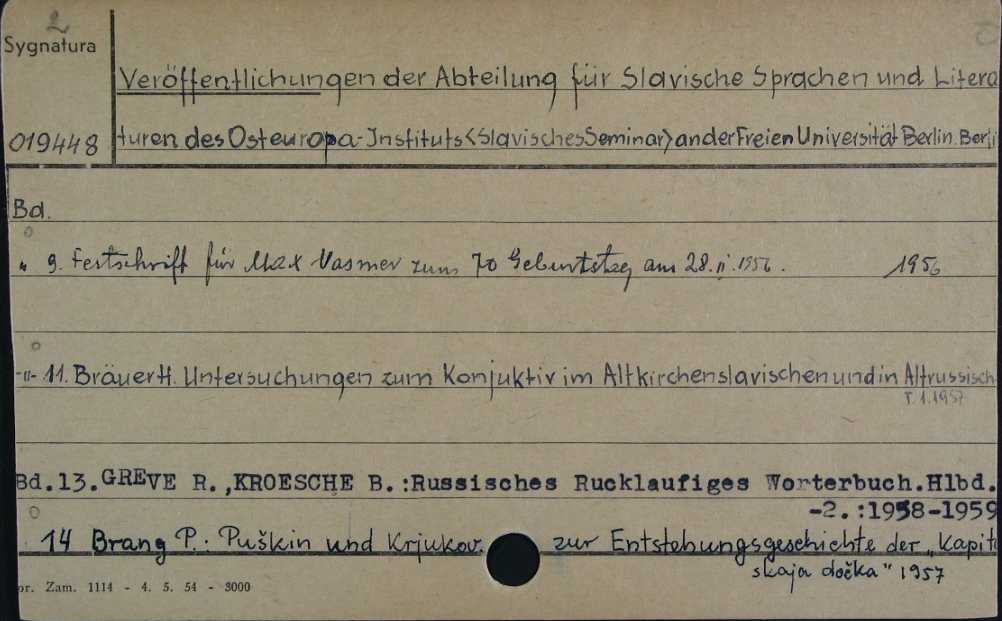 2
Sygnatura
Veröffentlichungen der Abteilung für Slavische Sprachen und Litera
019448 turen des Osteuropa-Instituts <Slavisches Seminar> an der Freien Universität Berlin. Berli
Bd.
" 9. Festschrift für Max Vasmer zum 70 Geburtstag am 28.II.1956. 1956
-"- 11. Bräuer H. Untersuchungen zum Konjuktiv im Altkirchenslavischen und in Altrussisch
T.1.1957
Bd.13.GREVE R.,KROESCHE B.:Russisches Rucklaufiges Worterbuch.Hlbd.
-2.:1958-1959
14 Brang P.: Puškin und Krjukov. zur Entstohungsgeschichte der „Kapita
skaja dočka" 1957
or. Zam. 1114 - 4. 5. 54 - 3000